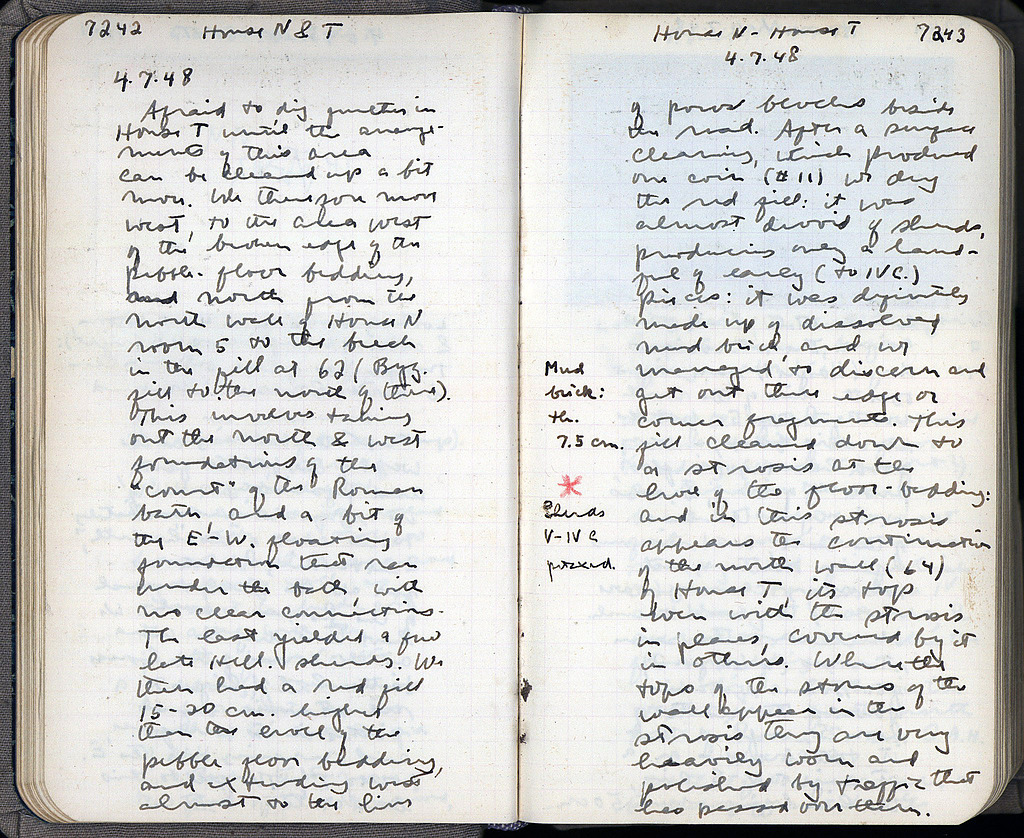 7242 House N & T
4.7.48
Afraid to dig further in
House T until the arrange-
ments of this area
can be cleaned up a bit
more. We therefore move
west, to the area west
of the broken edge of the
pebble-floor bedding,
and north from the
north wall of House N
room 5 to the break
in the fill at 62 (Byz.
fill to the north of there).
This involves taking
out the north & west
foundations of the
"court" of the Roman
bath, and a bit of
the E-W. floating
foundation that ran
under the bath with
no clear connections.
The last yielded a few
late Hell. sherds. We
then had a red fill
15-20 cm. higher
than the level of the
pebble floor bedding,
and extending west
almost to the line
House N - House T 7243
4.7.48
of poros blocks beside
the road. After a surface
cleaning, which produced
one coin (#11) we dug
the red fill: it was
almost devoid of sherds,
producing only a hand-
ful of early (to IV C.)
pieces: it was definitely
made up of dissolved
mud brick, and we
managed to discern and
get out three edge or
corner fragments. This
fill cleaned down to
a strosis at the
level of the floor-bedding:
and in this strosis
appears the continuation
of the north wall (64)
of House T, its tops
even with the strosis
in places, covered by it
in others. Where the
tops of the stones of the
wall appear in the
strosis they are very
heavily worn and
polished by traffic that
has passed over them.
Mud
brick:
th.
7.5 cm.
*
Sherds
V-IV C